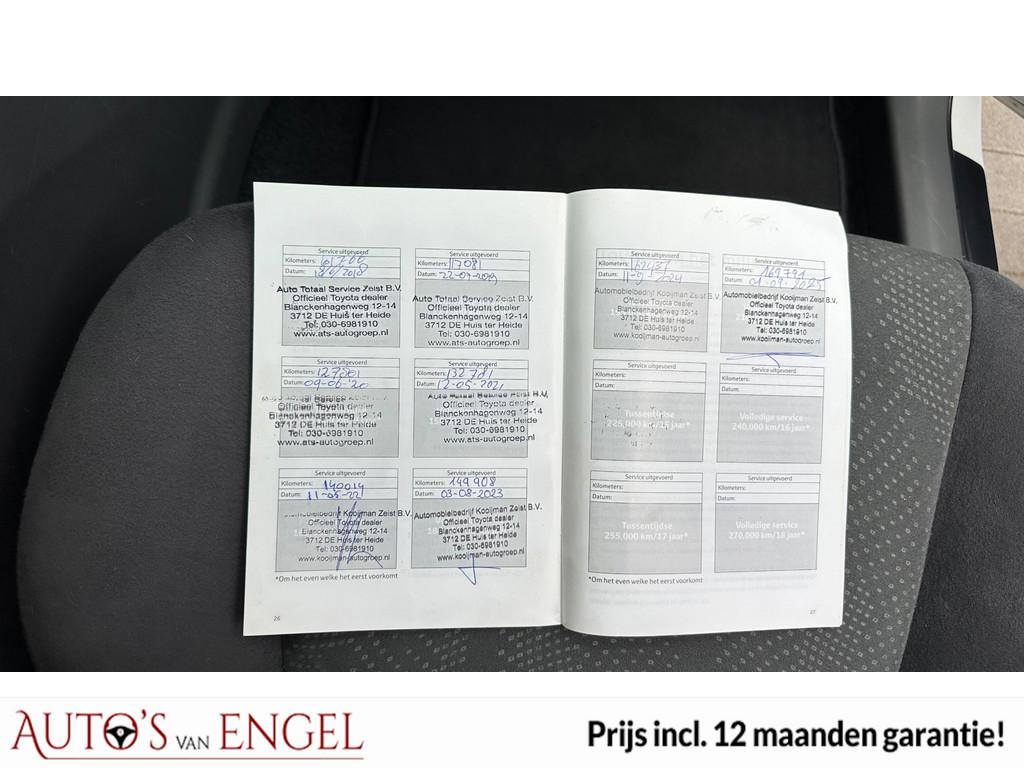 Service uitgevoerd
Kilometers:
Datum: 18/6/2018
Auto Totaal Service Zeist B.V.
Officieel Toyota dealer
Blanckenhagenweg 12-14
3712 DE Huis ter Heide
Tel: 030-6981910
www.ats-autogroep.nl
Service uitgevoerd
Kilometers: 117081
Datum: 22-07-2019
Auto Totaal Service Zeist B.V.
Officieel Toyota dealer
Blanckenhagenweg 12-14
3712 DE Huis ter Heide
Tel: 030-6981910
www.ats-autogroep.nl
Service uitgevoerd
Kilometers:
Datum: 09-06-'20
Officieel Toyota dealer
Blanckenhagenweg 12-14
3712 DE Huis ter Heide
Tel: 030-6981910
www.ats-autogroep.nl
Service uitgevoerd
Kilometers: 132781
Datum: 12-05-2021
Auto Totaal Service Zeist B.V.
Officieel Toyota dealer
Blanckenhagenweg 12-14
3712 DE Huis ter Heide
Tel: 030-6981910
www.ats-autogroep.nl
Service uitgevoerd
Kilometers: 140014
Datum: 11-05-22
Automobielbedrijf Kooijman Zeist B.V.
Officieel Toyota dealer
Blanckenhagenweg 12-14
3712 DE Huis ter Heide
Tel: 030-6981910
www.kooijman-autogroep.nl
Service uitgevoerd
Kilometers: 149908
Datum: 03-08-2023
Automobielbedrijf Kooijman Zeist B.V.
Officieel Toyota dealer
Blanckenhagenweg 12-14
3712 DE Huis ter Heide
Tel: 030-6981910
www.kooijman-autogroep.nl
*Om het even welke het eerst voorkomt
26
Service uitgevoerd
Kilometers:
Datum:
Automobielbedrijf Kooijman Zeist B.V.
Officieel Toyota dealer
Blanckenhagenweg 12-14
3712 DE Huis ter Heide
Tel: 030-6981910
www.kooijman-autogroep.nl
Service uitgevoerd
Kilometers: 169791
Datum: 01-09-2025
Automobielbedrijf Kooijman Zeist B.V.
Officieel Toyota dealer
Blanckenhagenweg 12-14
3712 DE Huis ter Heide
Tel: 030-6981910
www.kooijman-autogroep.nl
Service uitgevoerd
Kilometers:
Datum:
Tussentijdse
225,000 km/15 jaar*
Service uitgevoerd
Kilometers:
Datum:
Volledige service
240,000 km/16 jaar*
Service uitgevoerd
Kilometers:
Datum:
Tussentijdse
255,000 km/17 jaar*
Service uitgevoerd
Kilometers:
Datum:
Volledige service
270,000 km/18 jaar*
*Om het even welke het eerst voorkomt
27
AUTO'S VAN ENGEL
Prijs incl. 12 maanden garantie!